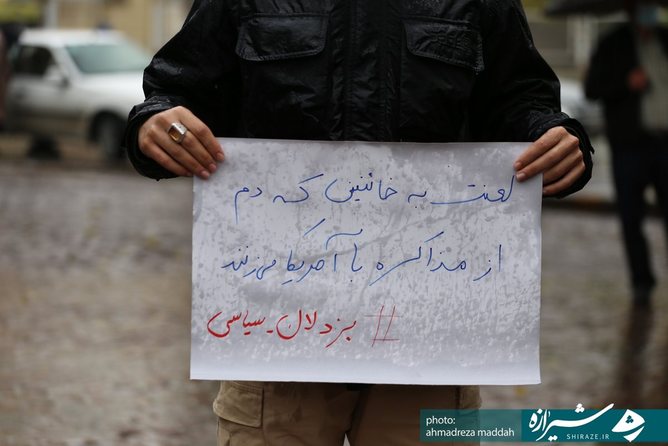 لعنت به خائنین که دم
از مذاکره با آمریکا می‌زنند
# بزدلان_سیاسی
photo:
ahmadreza maddah
شیرازه
SHIRAZE.IR